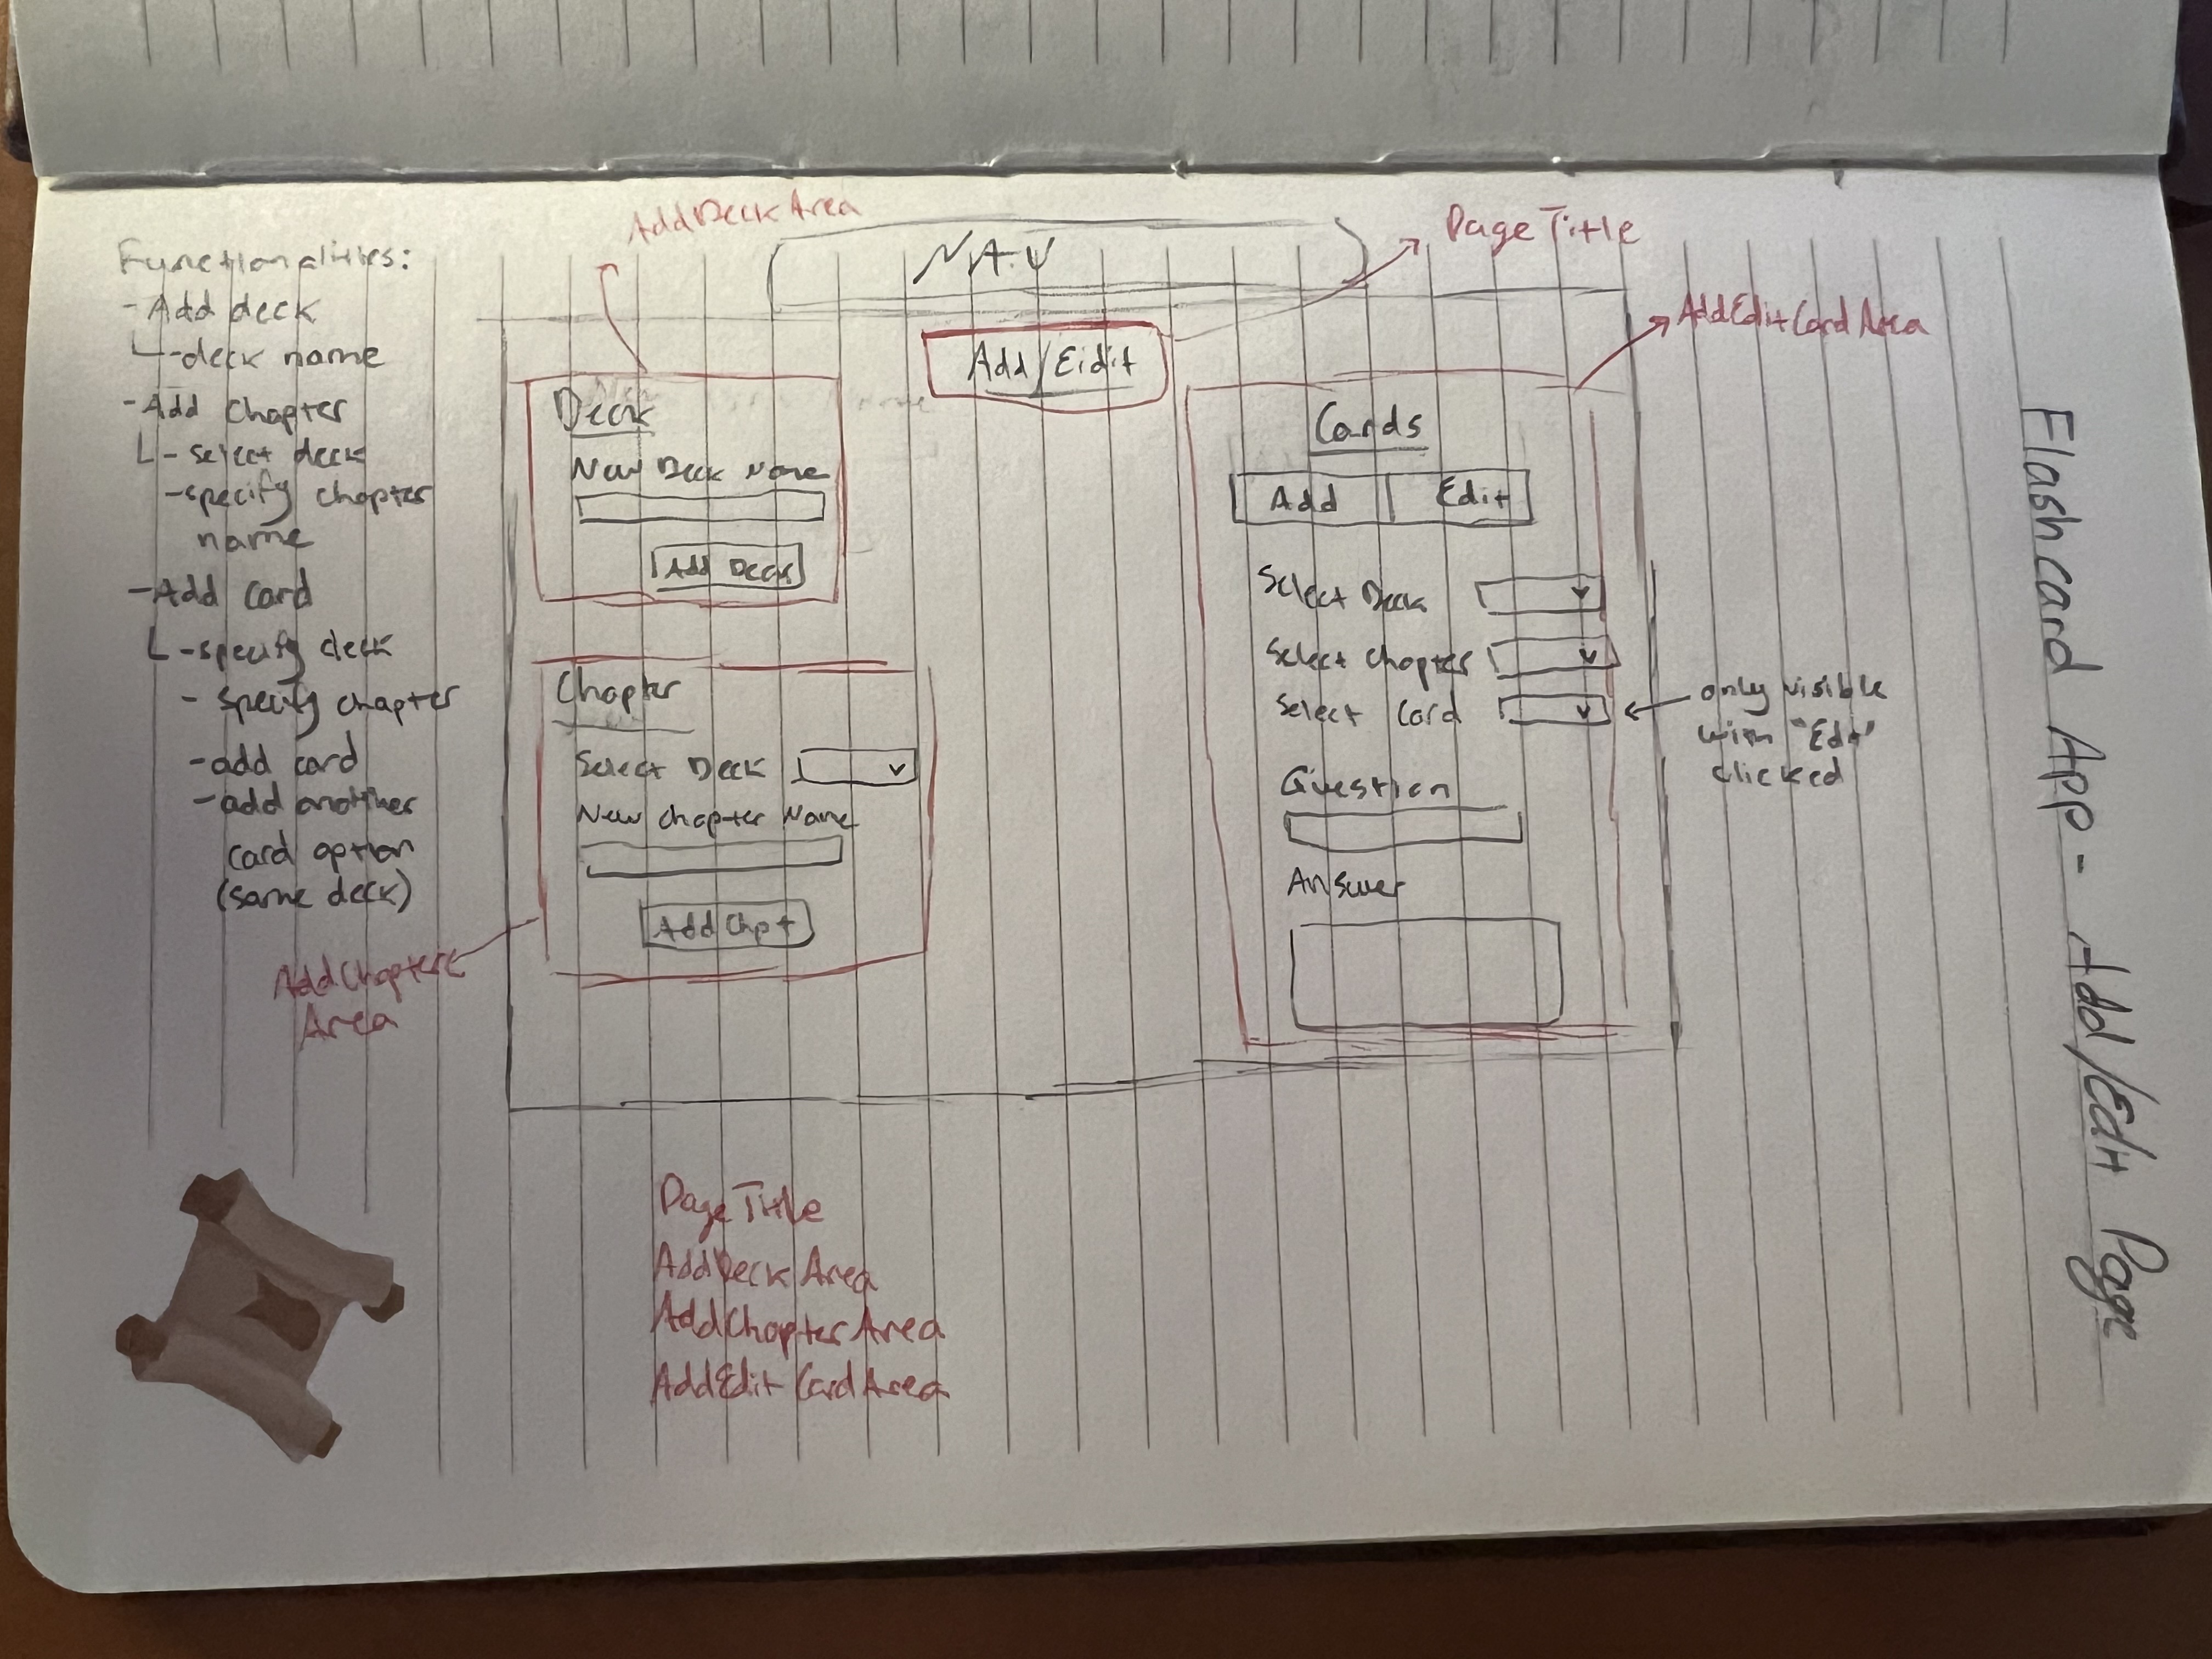 Functionalities:
- Add deck
L - deck name
- Add chapter
L - select deck
- specify chapter
name
- Add card
L - specify deck
- specify chapter
- add card
- add another
card option
(same deck)
AddDeckArea
NAV
PageTitle
AddEditCardArea
Add/Eidit
Deck
New Deck Name
Add Deck
Chapter
Select Deck
New chapter Name
Add Chpt
AddChapter
Area
Cards
Add Edit
Select Deck
Select chapter
Select Card
only visible
with "Edit"
clicked
Question
Answer
PageTitle
AddDeckArea
AddChapterArea
AddEditCardArea
Flashcard App - Add/Edit Page